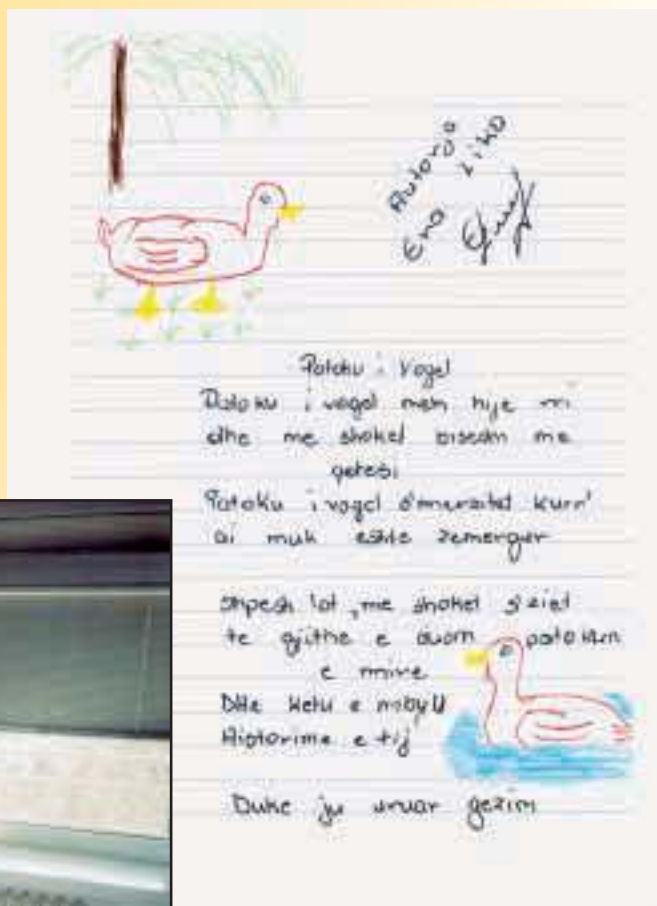 Autore
Ena
Patoku i Vogel
Patoku i vogel nen hije rri
dhe me shoket bisedn me
qetesi
Patoku i vogel s'merzitet kurr'
ai nuk eshte zemergur
Shpesh lot, me shoket s'zihet
te gjithe e duam patokun
e mire
Dhe ketu e mbyll
e tij
Duke ju uruar gezim